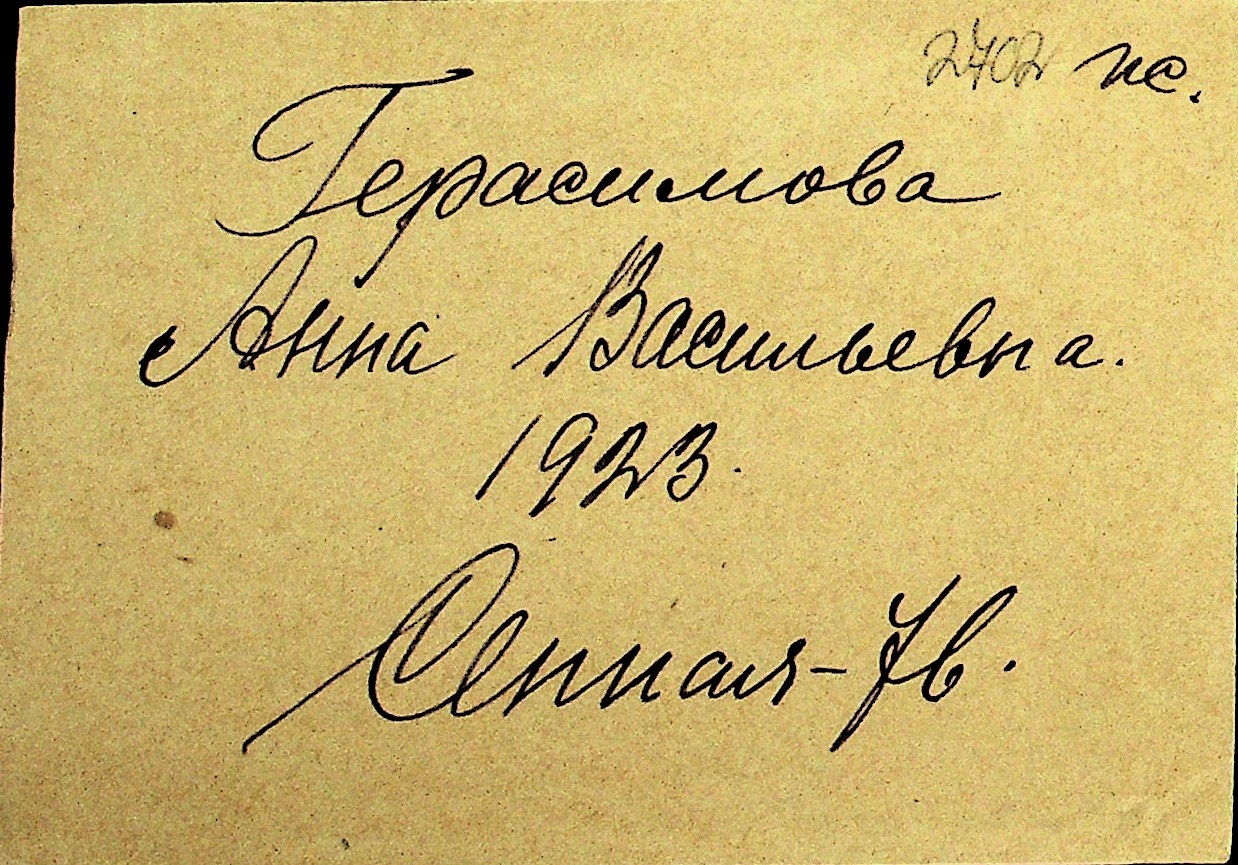 2702 пс.
Герасимова
Анна Васильевна.
1923.
Сенная – 7в.